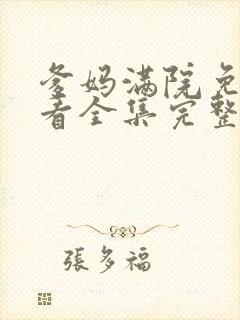 爹妈满院免
看全集完整
張多福